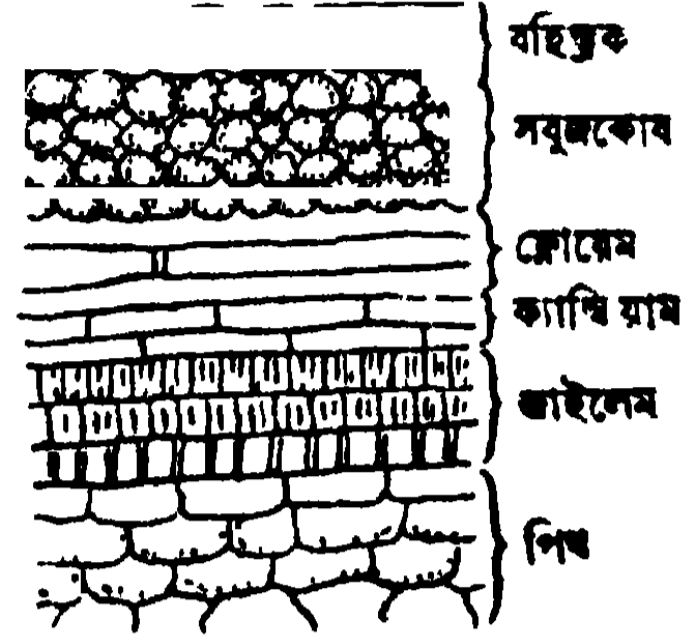 বহিস্ত্বক
সবুজকোষ
ফ্লোয়েম
ক্যাম্বিয়াম
জাইলেম
পিথ